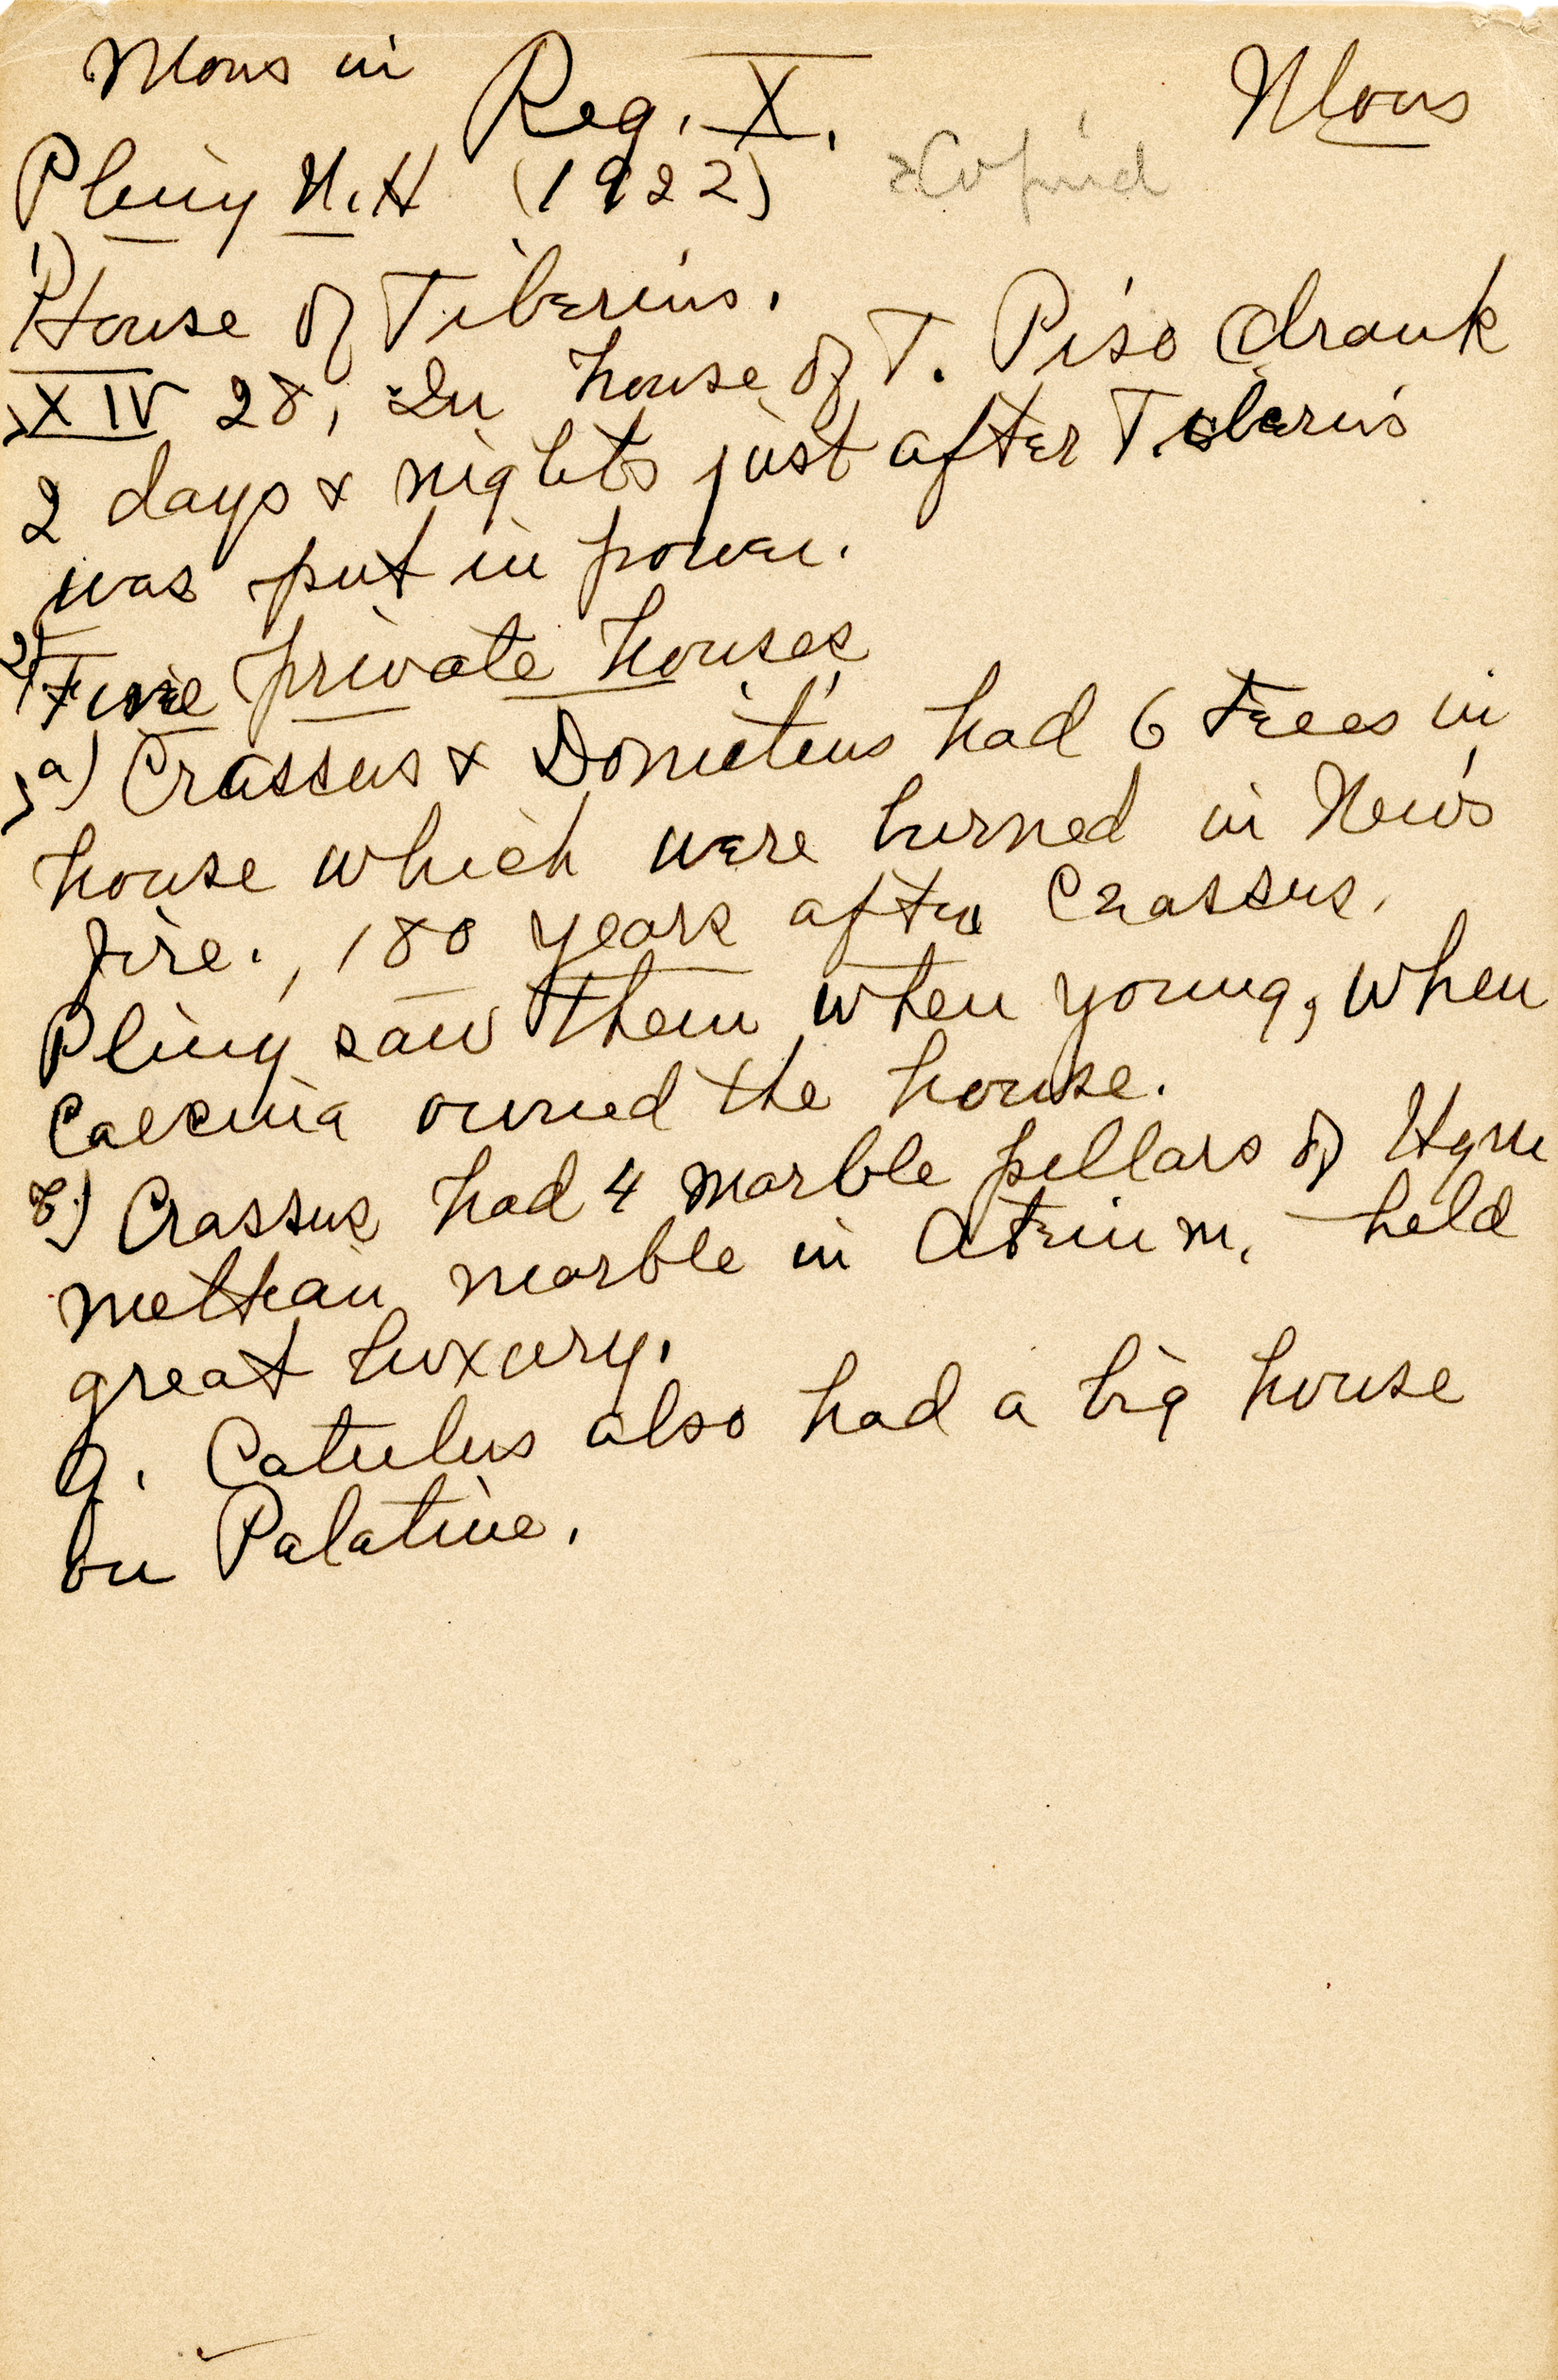 Mons in Reg. X. Mons
Pliny N.H (1922) Copied
1) House of Tiberius.
XIV 28, In house of T. Piso drank
2 days & nights just after Tiberius
was put in power.
2) Fine private houses
a) Crassus & Domitius had 6 trees in
house which were burned in Nero's
fire., 180 years after Crassus.
Pliny saw them when young, when
Caecina owned the house.
b) Crassus had 4 marble pillars of Hyme
mettian marble in Atrium, held
great luxury.
Q. Catulus also had a big house
on Palatine.